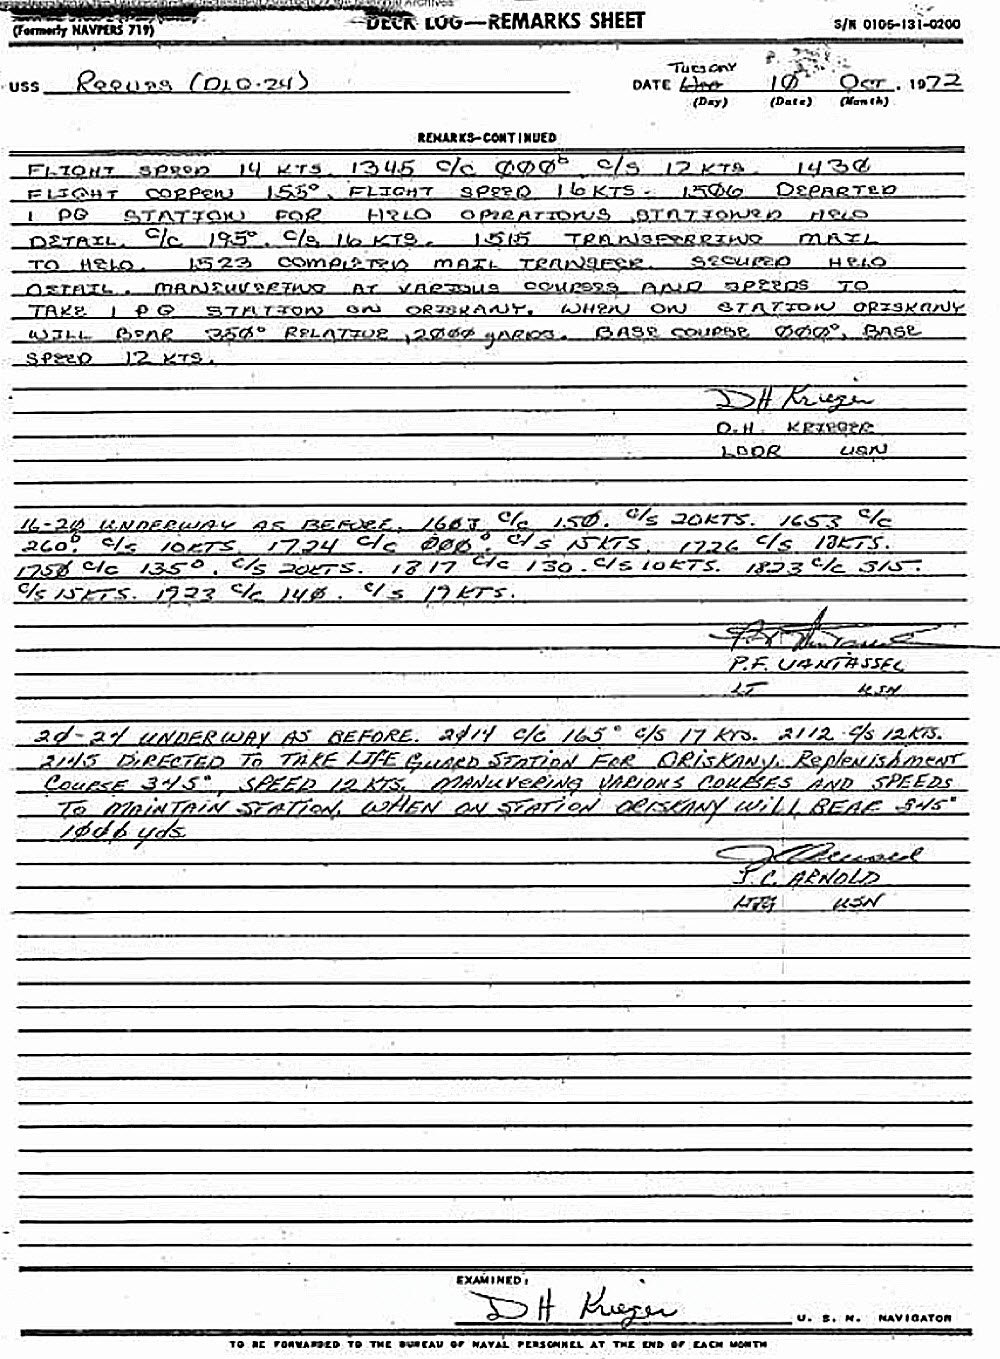 (Formerly NAVPERS 719)
DECK LOG—REMARKS SHEET
S/N 0106-131-0200
USS REEVES (DLG-24)
TUESDAY
DATE 10 OCT. 1972
(Day) (Date) (Month)
REMARKS-CONTINUED
FLIGHT SPEED 14 KTS. 1345 C/C ØØØ° C/S 12 KTS. 143Ø
FLIGHT CORPEN 155°. FLIGHT SPEED 16 KTS. 15Ø6 DEPARTED
1 PG STATION FOR HELO OPERATIONS. STATIONED HELO
DETAIL. C/C 195°. C/S 16 KTS. 1515 TRANSFERRING MAIL
TO HELO. 1523 COMPLETED MAIL TRANSFER. SECURED HELO
DETAIL. MANEUVERING AT VARIOUS COURSES AND SPEEDS TO
TAKE 1 PG STATION ON ORISKANY. WHEN ON STATION ORISKANY
WILL BEAR 35Ø° RELATIVE, 2ØØØ YARDS. BASE COURSE ØØØ°, BASE
SPEED 12 KTS.
DH Krieger
D.H. KRIEGER
LCDR USN
16-2Ø UNDERWAY AS BEFORE. 16Ø3 C/C 15Ø. C/S 20KTS. 1653 C/C
260° C/S 10KTS. 1724 C/C ØØØ°. C/S 15KTS. 1726 C/S 18KTS.
175Ø C/C 135°. C/S 20KTS. 1817 C/C 130. C/S 10KTS. 1823 C/C 315.
C/S 15KTS. 1923 C/C 14Ø. C/S 19KTS.
P.F. VANTASSEL
LT USN
2Ø-24 UNDERWAY AS BEFORE. 2Ø14 C/C 165° C/S 17 KTS. 2112 C/S 12KTS.
2145 DIRECTED TO TAKE LIFE GUARD STATION FOR ORISKANY. Replenishment
COURSE 345°, SPEED 12 KTS. MANUVERING VARIOUS COURSES AND SPEEDS
TO MAINTAIN STATION. WHEN ON STATION ORISKANY WILL BEAR 345°
1ØØØ yds.
J.C. ARNOLD
LTJG USN
EXAMINED:
DH Krieger
U. S. N. NAVIGATOR
TO BE FORWARDED TO THE BUREAU OF NAVAL PERSONNEL AT THE END OF EACH MONTH